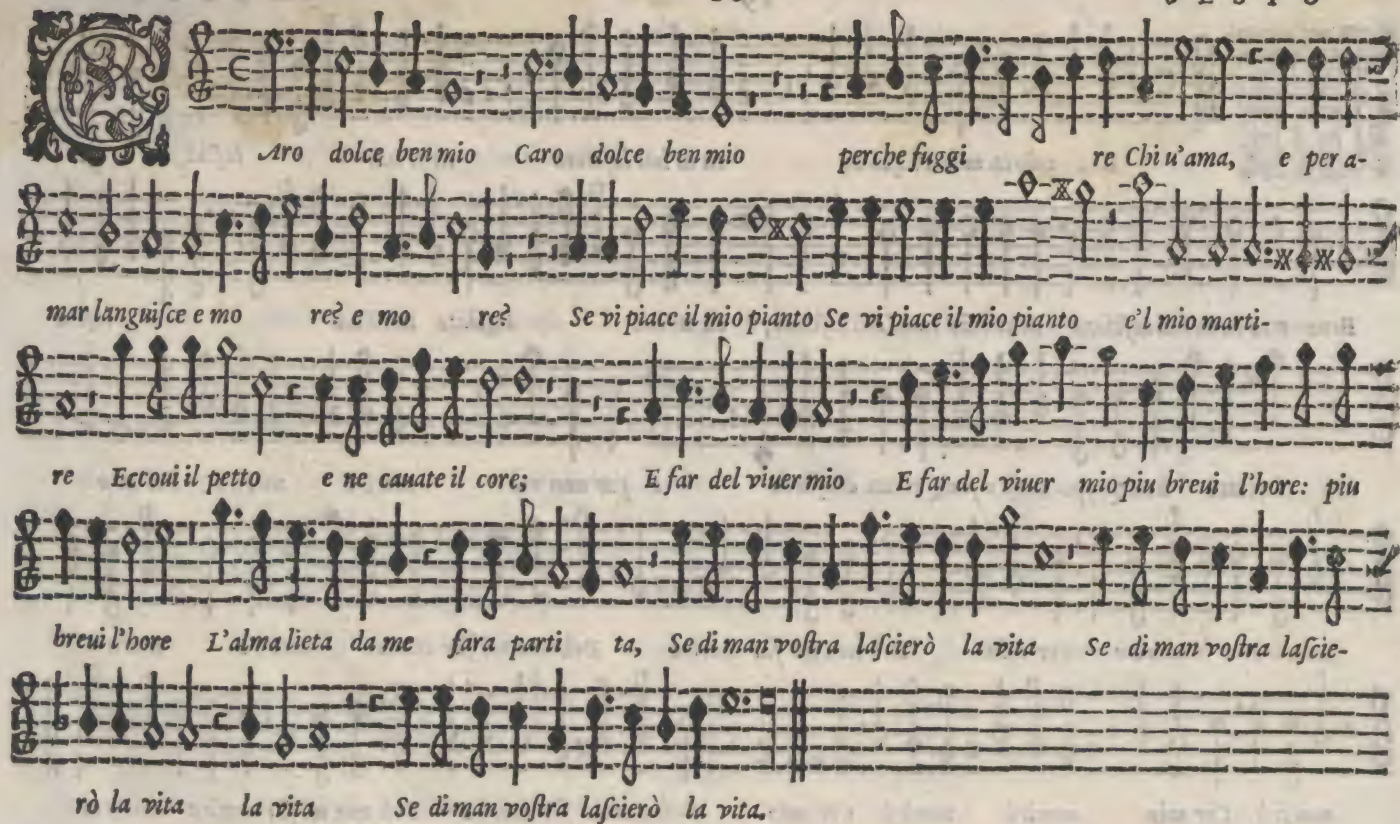 CAro dolce ben mio Caro dolce ben mio perche fuggi re Chi u'ama, e per a-
mar languiſce e mo re? e mo re? Se vi piace il mio pianto Se vi piace il mio pianto e'l mio marti-
re Eccoui il petto e ne cauate il core; E far del viuer mio E far del viuer mio piu breui l'hore: piu
breui l'hore L'alma lieta da me fara parti ta, Se di man voſtra laſcierò la vita Se di man voſtra laſcie-
rò la vita la vita Se di man voſtra laſcierò la vita.